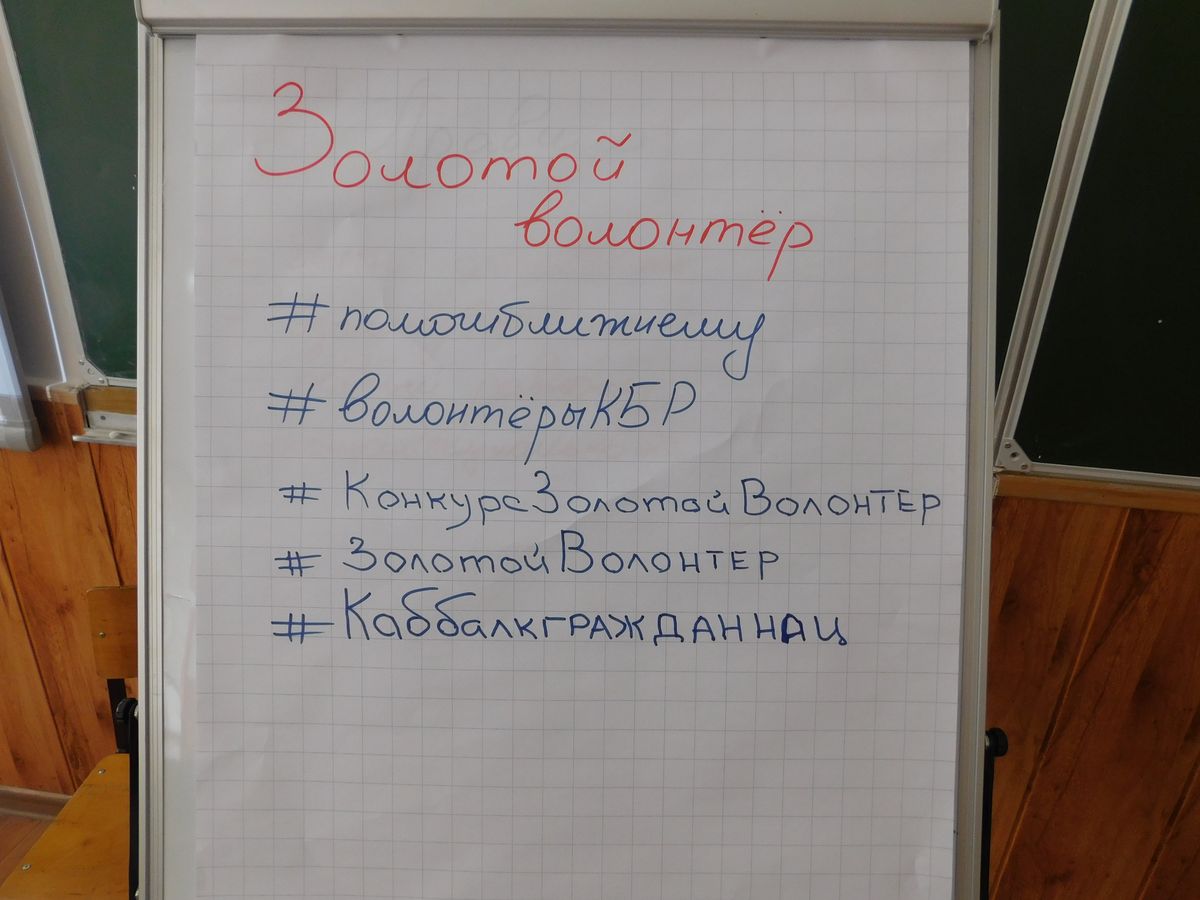 Золотой
волонтёр
#помошближнему
#волонтёрыКБР
#КонкурсЗолотойВолонтёр
#ЗолотойВолонтер
#Каббалкгражданнац